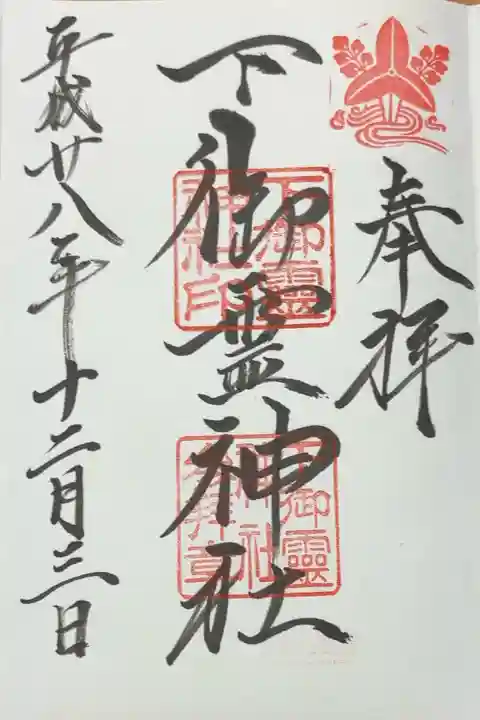 奉拝
下御霊神社
下御霊神社印
下御靈神社参拝章
平成廿八年十二月三日